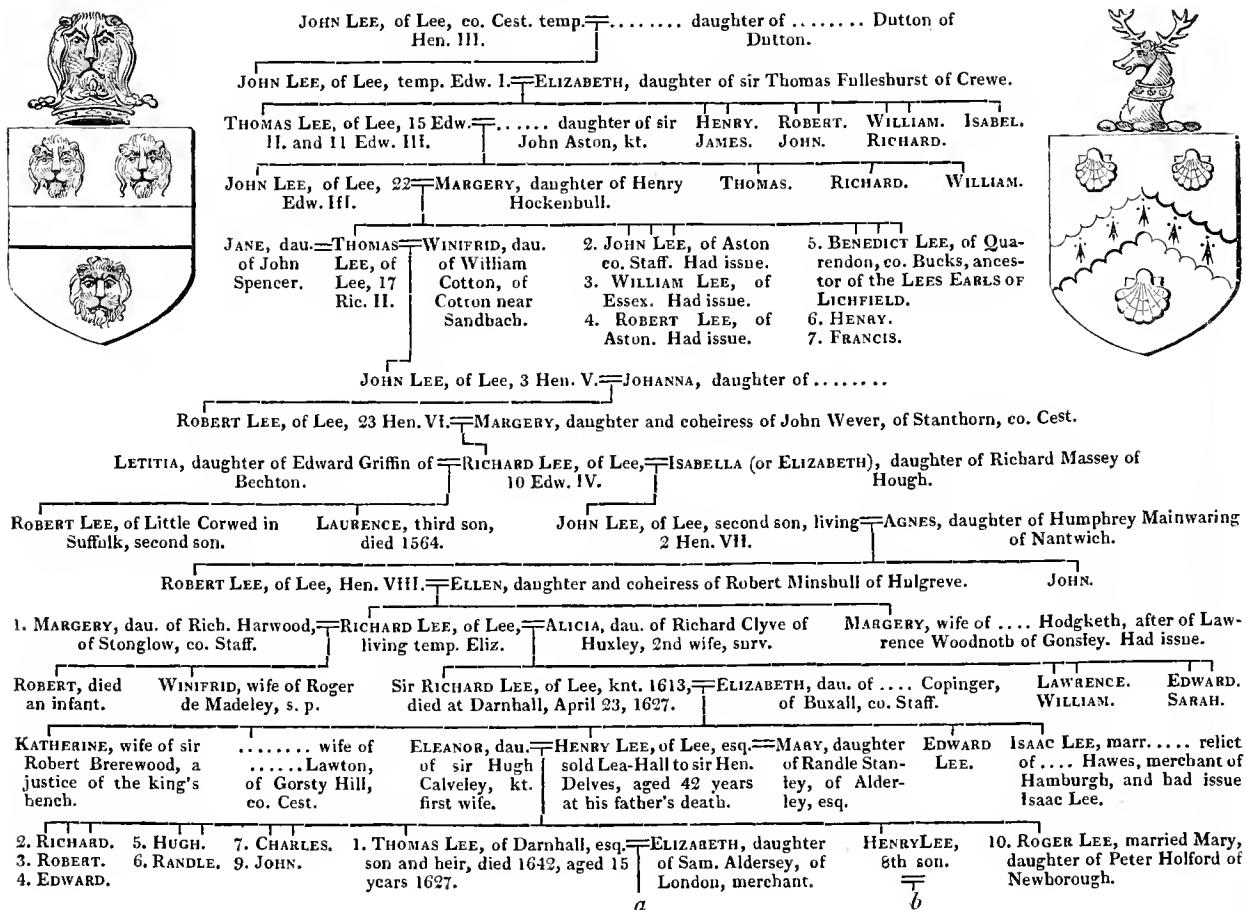 JOHN LEE, of Lee, co. Cest. temp. ........ daughter of ........ Dutton of
Hen. III. Dutton.
JOHN LEE, of Lee, temp. Edw. I. ELIZABETH, daughter of sir Thomas Fulleshurst of Crewe.
THOMAS LEE, of Lee, 15 Edw. ...... daughter of sir HENRY. ROBERT. WILLIAM. ISABEL.
II. and 11 Edw. III. John Aston, kt. JAMES. JOHN. RICHARD.
JOHN LEE, of Lee, 22 MARGERY, daughter of Henry THOMAS. RICHARD. WILLIAM.
Edw. III. Hockenbull.
JANE, dau.
of John
Spencer.
THOMAS
LEE, of
Lee, 17
Ric. II.
WINIFRID, dau.
of William
Cotton, of
Cotton near
Sandbach.
2. JOHN LEE, of Aston
co. Staff. Had issue.
3. WILLIAM LEE, of
Essex. Had issue.
4. ROBERT LEE, of
Aston. Had issue.
5. BENEDICT LEE, of Qua-
rendon, co. Bucks, ances-
tor of the LEES EARLS OF
LICHFIELD.
6. HENRY.
7. FRANCIS.
JOHN LEE, of Lee, 3 Hen. V. JOHANNA, daughter of ........
ROBERT LEE, of Lee, 23 Hen. VI. MARGERY, daughter and coheiress of John Wever, of Stanthorn, co. Cest.
LETITIA, daughter of Edward Griffin of
Bechton.
RICHARD LEE, of Lee,
10 Edw. IV.
ISABELLA (or ELIZABETH), daughter of Richard Massey of
Hough.
ROBERT LEE, of Little Corwed in
Suffolk, second son.
LAURENCE, third son,
died 1564.
JOHN LEE, of Lee, second son, living
2 Hen. VII.
AGNES, daughter of Humphrey Mainwaring
of Nantwich.
ROBERT LEE, of Lee, Hen. VIII. ELLEN, daughter and coheiress of Robert Minshull of Hulgreve. JOHN.
1. MARGERY, dau. of Rich. Harwood,
of Stonglow, co. Staff.
RICHARD LEE, of Lee,
living temp. Eliz.
ALICIA, dau. of Richard Clyve of
Huxley, 2nd wife, surv.
MARGERY, wife of .... Hodgketh, after of Law-
rence Woodnoth of Gonsley. Had issue.
ROBERT, died
an infant.
WINIFRID, wife of Roger
de Madeley, s. p.
Sir RICHARD LEE, of Lee, knt. 1613,
died at Darnhall, April 23, 1627.
ELIZABETH, dau. of .... Copinger,
of Buxall, co. Staff.
LAWRENCE.
WILLIAM.
EDWARD.
SARAH.
KATHERINE, wife of sir
Robert Brerewood, a
justice of the king's
bench.
........ wife of
...... Lawton,
of Gorsty Hill,
co. Cest.
ELEANOR, dau.
of sir Hugh
Calveley, kt.
first wife.
HENRY LEE, of Lee, esq.
sold Lea-Hall to sir Hen.
Delves, aged 42 years
at his father's death.
MARY, daughter
of Randle Stan-
ley, of Alder-
ley, esq.
EDWARD
LEE.
ISAAC LEE, marr..... relict
of .... Hawes, merchant of
Hamburgh, and had issue
Isaac Lee.
2. RICHARD.
3. ROBERT.
4. EDWARD.
5. HUGH.
6. RANDLE.
7. CHARLES.
9. JOHN.
1. THOMAS LEE, of Darnhall, esq.
son and heir, died 1642, aged 15
years 1627.
ELIZABETH, daughter
of Sam. Aldersey, of
London, merchant.
HENRY LEE,
8th son.
10. ROGER LEE, married Mary,
daughter of Peter Holford of
Newborough.
a b